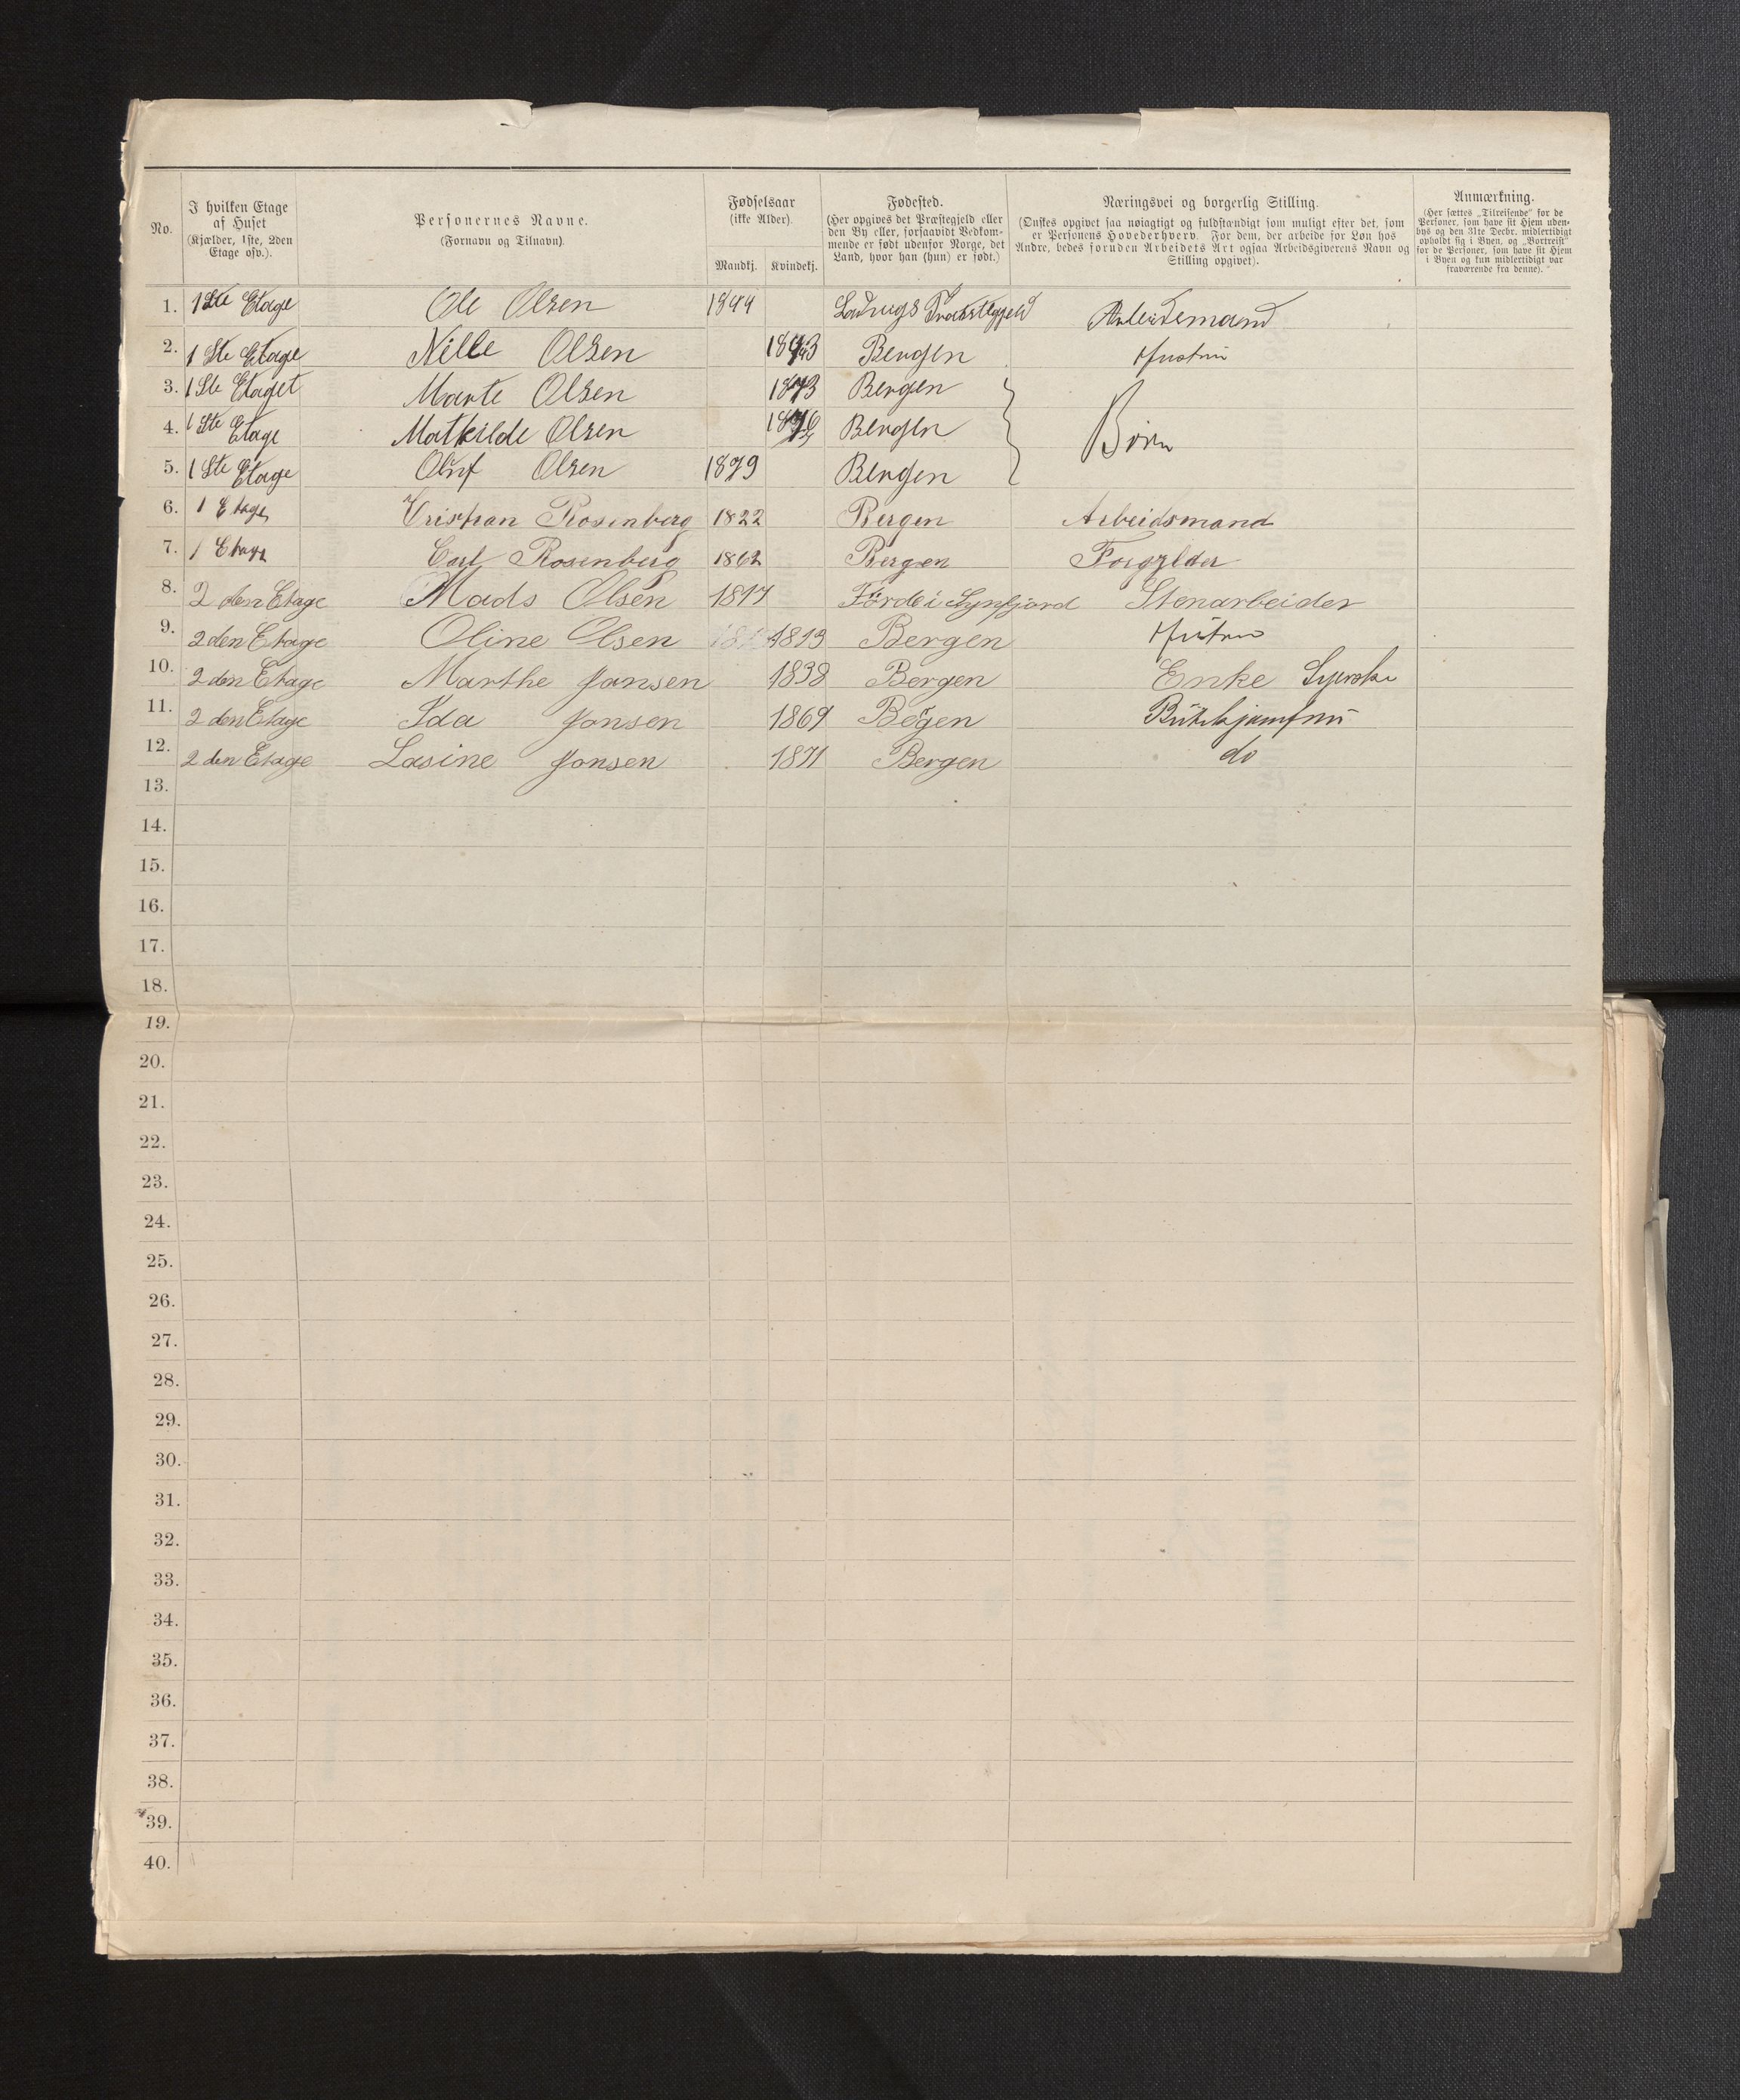 No.
I hvilken Etage
af Huset
(Kjælder, 1ste, 2den
Etage osv.).
Personernes Navne.
(Fornavn og Tilnavn)
Fødselsaar
(ikke Alder).
Mandkj. Kvindekj.
Fødested.
(Her opgives det Præstegjeld eller
den By eller, forsaavidt Vedkom-
mende er født udenfor Norge, det
Land, hvor han (hun) er født.)
Næringsvei og borgerlig Stilling.
(Ønskes opgivet saa nøiagtigt og fuldstændigt som muligt efter det, som
er Personens Hovederhverv. For dem, der arbeide for Løn hos
Andre, bedes foruden Arbeidets Art ogsaa Arbeidsgiverens Navn og
Stilling opgivet).
Anmærkning.
(Her sættes „Tilreisende“ for de
Personer, som have sit Hjem uden-
bys og den 31te Decbr. midlertidigt
opholdt sig i Byen, og „Bortreist“
for de Personer, som have sit Hjem
i Byen og kun midlertidigt var
fraværende fra denne).
1. 1Ste Etage Ole Olsen 1844
2. 1 Ste Etage Nille Olsen Bergen Hustru
3. 1 Ste Etaget Marte Olsen 1873 Bergen
4. 1 Ste Etage Mathilde Olsen Bergen Børn
5. 1 Ste Etage Oluf Olsen 1879 Bergen
6. 1 Etage Cristian Rosenberg 1822 Bergen Arbeidsmand
7. 1 Etage Carl Rosenberg 1862 Bergen Forgylder
8. 2 den Etage Mads Olsen 1817 Förde i Synfjord Stenarbeider
9. 2 den Etage Oline Olsen 1819 Bergen Hustru
10. 2 den Etage Marthe Jansen 1838 Bergen Enke
11. 2 den Etage Ida Jonsen 1869
12. 2 den Etage Lasine Jonsen 1871 Bergen do
13.
14.
15.
16.
17.
18.
19.
20.
21.
22.
23.
24.
25.
26.
27.
28.
29.
30.
31.
32.
33.
34.
35.
36.
37.
38.
39.
40.